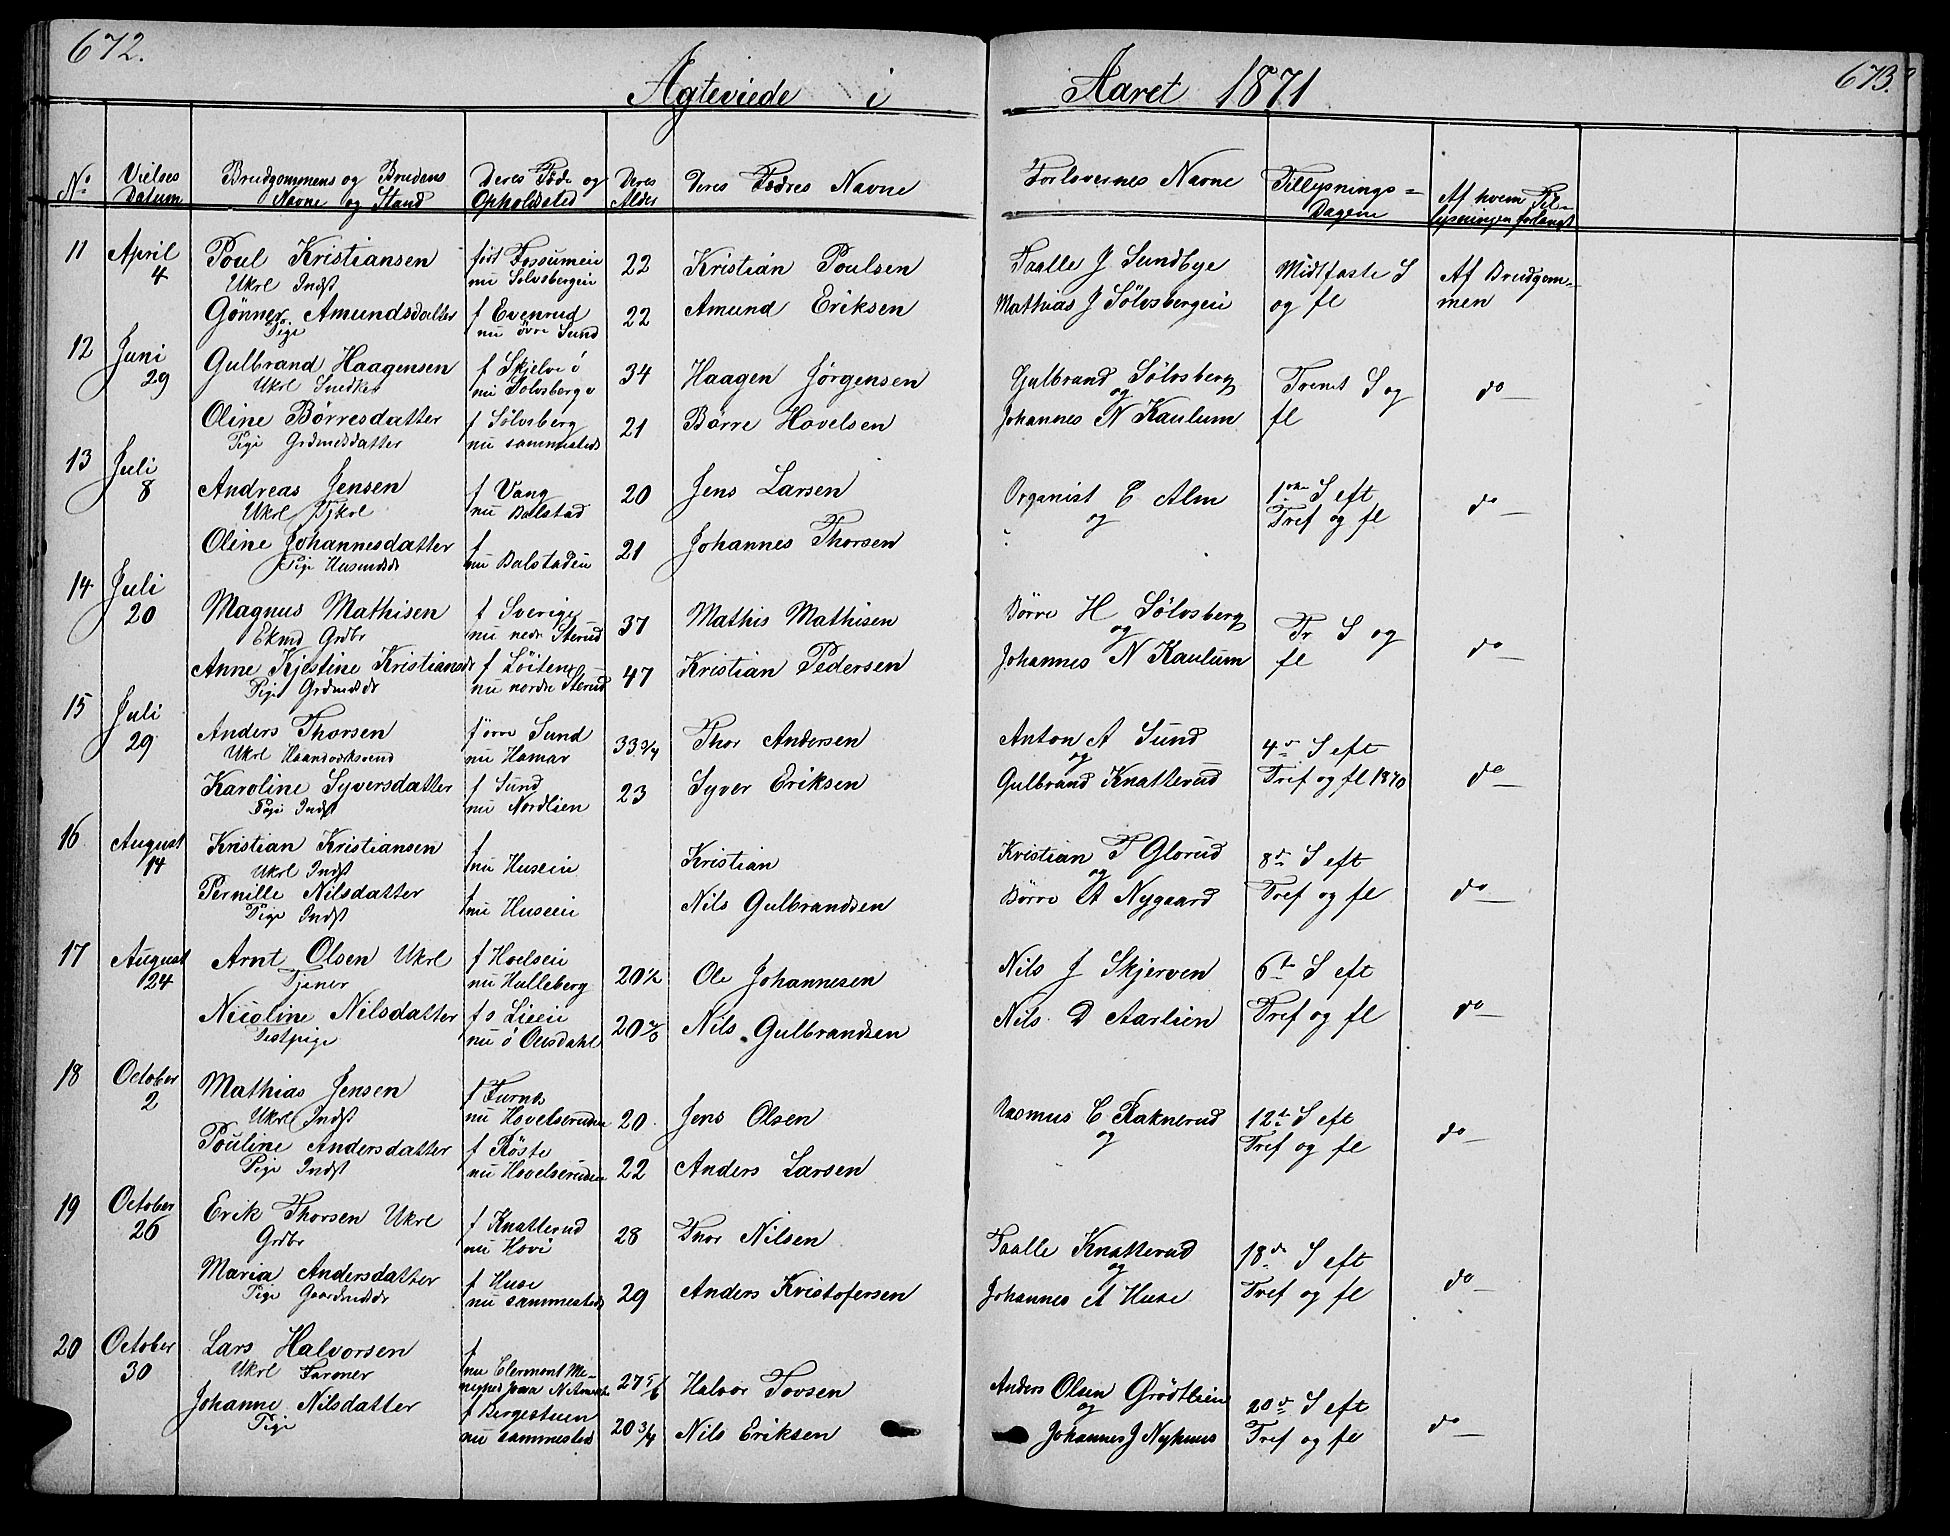 672.
673.
Ægteviede i Aaret 1871
No
Vielses Datum
Brudgommens og Brudens Navne og Stand
Deres Føde og Opholdssted
Deres Alder
Deres Fædres Navne
Forlovernes Navne
Tillysnings=Dagene
Af hvem Til=lysningen forlangt
11 April 4
Poul Kristiansen
Ukrl Indst
født Fossumeie
nu Solvsbergeie
22
Kristian Poulsen
Paalle J Sundbye
Mathias J Sölvsbergeie
Midtfaste S
og fl
Af Brudgom=
men
Gönner Amundsdatter
Pige
f Evenrud
nu övre Sund
22
Amund Eriksen
12 Juni 29
Gulbrand Haagensen
Ukrl Snedker
f Skjelve ö
nu Solvsberg e
34
Haagen Jörgensen
Gulbrand Sölvsberg
og
Johannes N Kaulum
Trenet S og
fl
do
Oline Börresdatter
Pige Grdmdsdatter
f Sölvsberg
nu sammesteds
21
Börre Hovelsen
13 Juli 8
Andreas Jensen
Ukrl Tjkrl
f Vang
nu Balstad
20
Jens Larsen
Organist C Alm
og
1ste S eft
Tref og fl
do
Oline Johannesdatter
Pige Husmdsdr
f
nu Balstadeie
21
Johannes Thorsen
14 Juli 20
Magnus Mathisen
Ekmd Grdbr
f Sverige
nu nedr Sterud
37
Mathis Mathisen
Börre H Sölvsberg
og
Johannes N Kaulum
Tr S og
fl
do
Anne Kjestine Kristiansdr
Pige Grdmdsdr
f Löiten
nu nordre Sterud
47
Kristian Pedersen
15 Juli 29
Anders Thorsen
Ukrl Haandverksvend
f övre Sund
nu Hamar
33 3/4
Thor Andersen
Anton A Sund
og
Gulbrand Knatterud
4de S eft
Tref og fl 1870
do
Karoline Syversdatter
Pige Indst
f Sund
nu Nordlien
23
Syver Eriksen
16 August 14
Kristian Kristiansen
Ukrl Indst
f
nu Huseie
Kristian
Kristian P Glorud
og
Börre A Nygaard
8de S eft
Tref og fl
do
Pernille Nilsdatter
Pige Indst
f
nu Huseie
Nils Gulbrandsen
17 August 24
Arnt Olsen Ukrl
Tjener
f Hoelseie
nu Hulleberg
20 1/2
Ole Johannesen
Nils J Skjerven
Nils D Aarlien
6te S eft
Tref og fl
do
Nicoline Nilsdatter
Testpige
f s Lieeie
nu ö Olsdahl
Nils Gulbrandsen
18 October 2
Mathias Jensen
Ukrl Indst
f Furnes
nu Hovelsrudeie
20
Jens Olsen
Rasmus C Raknerud
og
12te S eft
Tref og fl
do
Pouline Andersdatter
Pige Indst
f Röste
nu Hovelsrudeie
22
Anders Larsen
19 October 26
Erik Thorsen Ukrl
Grdbr
f Knatterud
nu Hovi
28
Thor Nilsen
Paalle Knatterud
og
Johannes A Huse
18de S eft
Tref og fl
do
Maria Andersdatter
Pige Gaardmdsdr
f Huse
nu sammesteds
29
Anders Kristofersen
20 October 30
Lars Halvorsen
Ukrl Farmer
f
nu Clermont Me-
nighed Jowa N Amerika
27 5/6
Halvor Tovsen
Anders Olsen Grödtlien
og
Johannes J Nyhuus
20de S eft
Tref og fl
do
Johanne Nilsdatter
Pige
f Bergestuen
nu sammesteds
20 3/4
Nils Eriksen